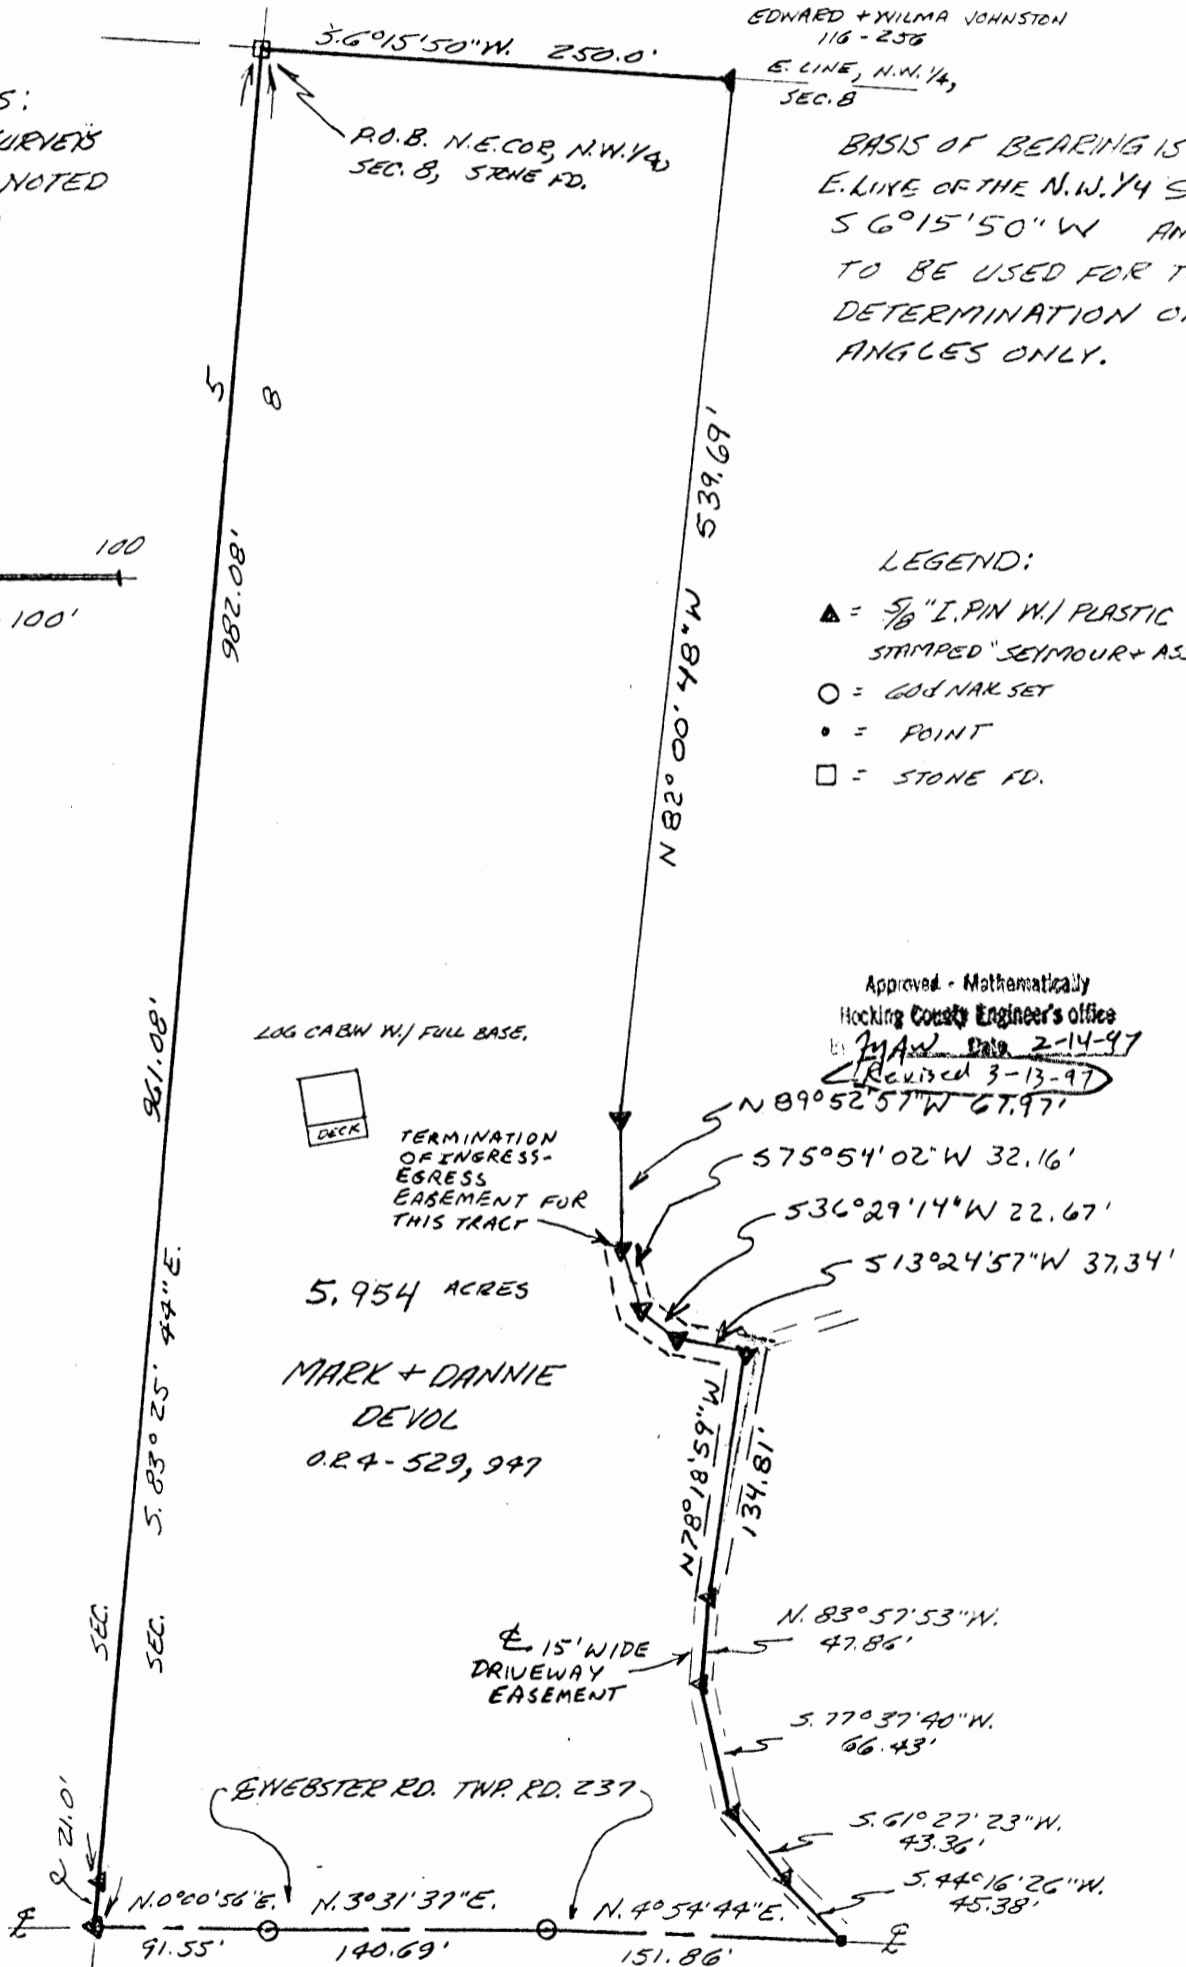 S.6°15'50"W. 250.0'
EDWARD + WILMA JOHNSTON
116-256
E. LINE, N.W. 1/4,
SEC. 8
S:
SURVEYS
NOTED
P.O.B. N.E. COR, N.W. 1/4,
SEC. 8, STONE FD.
BASIS OF BEARING IS
E. LINE OF THE N.W. 1/4 S
S 6°15'50" W AN
TO BE USED FOR T
DETERMINATION O
ANGLES ONLY.
5
8
982.08'
N 82°00'48"W 539.69'
100
100'
LEGEND:
▲ = 5/8" I. PIN W./ PLASTIC
STAMPED "SEYMOUR + ASS
○ = 60d NAIL SET
• = POINT
□ = STONE FD.
Approved - Mathematically
Hocking County Engineer's office
Date 2-14-97
Revised 3-13-97
961.08'
LOG CABIN W./ FULL BASE.
DECK
TERMINATION
OF INGRESS-
EGRESS
EASEMENT FOR
THIS TRACT
N 89°52'57"W 67.97'
S75°54'02"W 32.16'
S36°29'14"W 22.67'
S13°24'57"W 37.34'
5.954 ACRES
MARK + DANNIE
DEVOL
O.R.4-529, 947
S. 83°25'44"E.
N78°18'59"W
134.81'
SEC.
SEC.
℄ 15' WIDE
DRIVEWAY
EASEMENT
N. 83°57'53"W.
47.86'
S. 77°37'40"W.
66.43'
℄ WEBSTER RD. TWP. RD. 237
S. 61°27'23"W.
43.36'
S. 44°16'26"W.
45.38'
21.0'
℄
N.0°00'56"E. N.3°31'37"E. N.4°54'44"E.
℄
91.55' 140.69' 151.86'